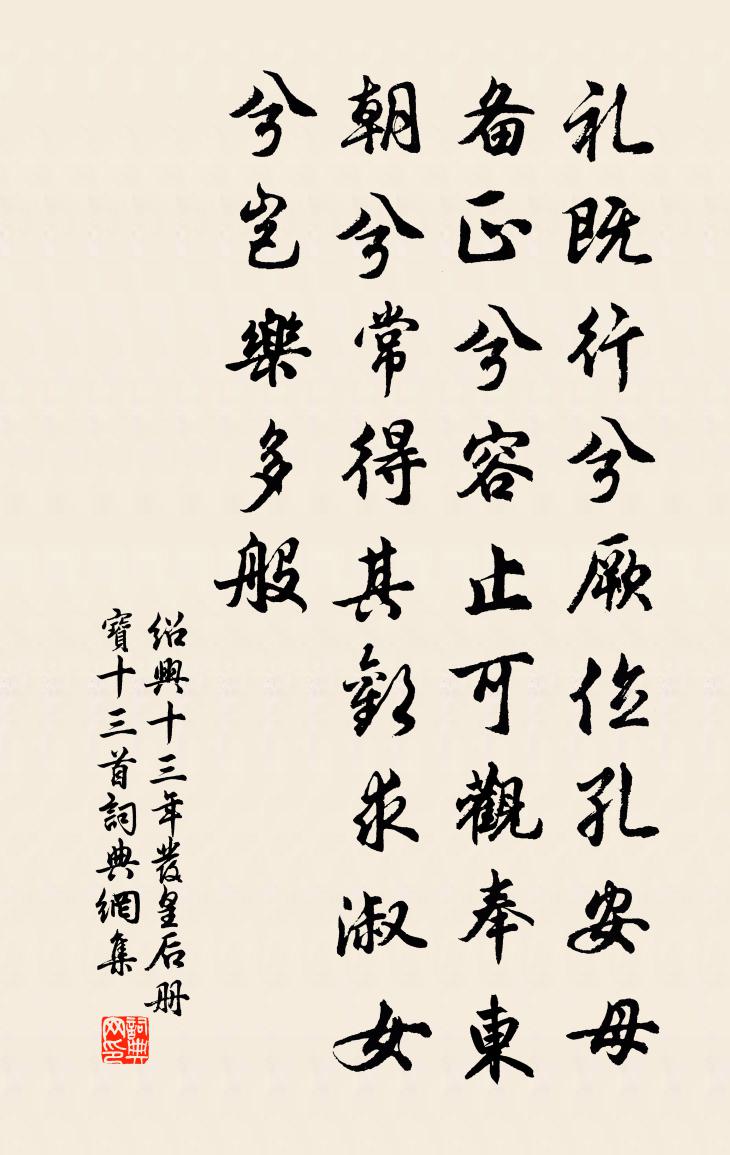 礼既行兮厥位孔安母
备正兮容止可觀奉東
朝兮常得其歡求淑女
兮豈樂多般
绍興十三年發皇后册
寶十三首詞典網集
詞典网印